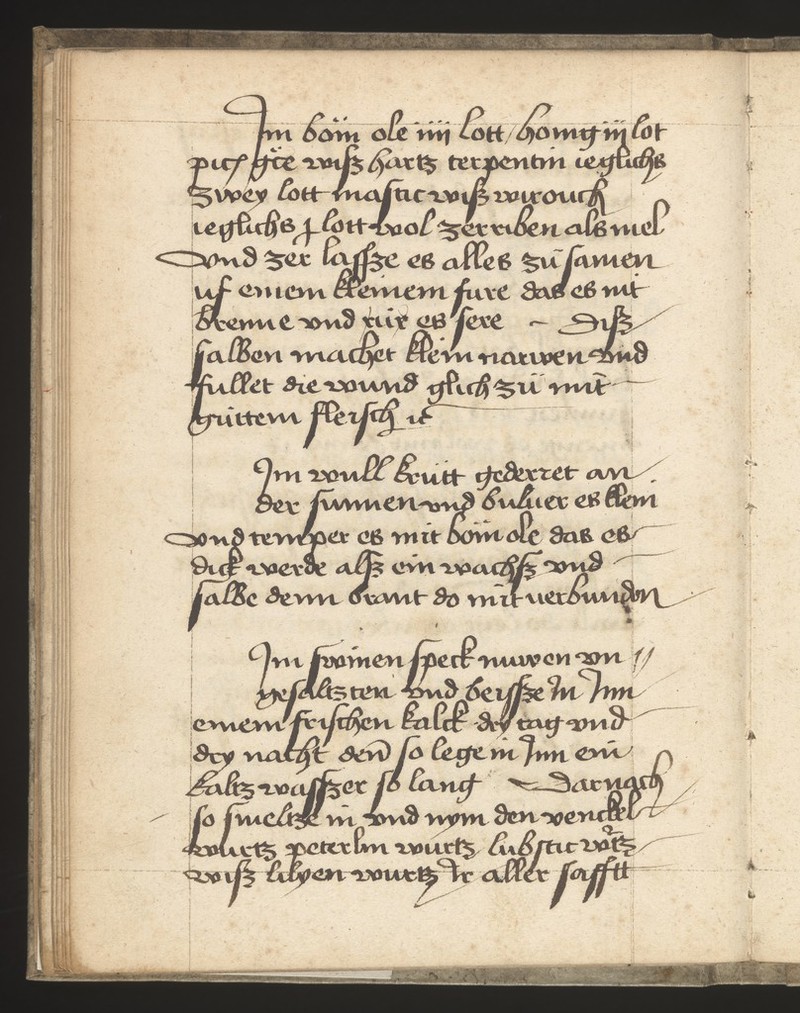 Im böm ole iiij lott / honig iij lot
pich wiß hartz terpentin ieglichs
zwey lott mastic wiß wirouch
ieglichs j lott wol zerriben als mel
vnd zer lassze es alles zü samen
uf einem kleinem fure das es nit
brenne vnd rür es sere – Diß
salben machet klein narwen vnd
fullet die wund glich zü mit
güttem fleisch
Im wull krütt gederret an
der sunnen vnd buluer es klein
vnd temper es mit böm ole das es
dick werde alß ein wachß vnd
salbe denn brant do mit uerbunden
Im swinen speck nuwen vn //
gesaltzten vnd beissze in Inn
einem frischen kalck dry tag vnd
dry nacht den̄ so lege in Inn ein
kaltz wasszer so lang – Darnach
so smeltze in vnd nym den venckel
wurtz peterlin wurtz lubstic wrtz
wiß lilyen wurtz Ir aller safftt